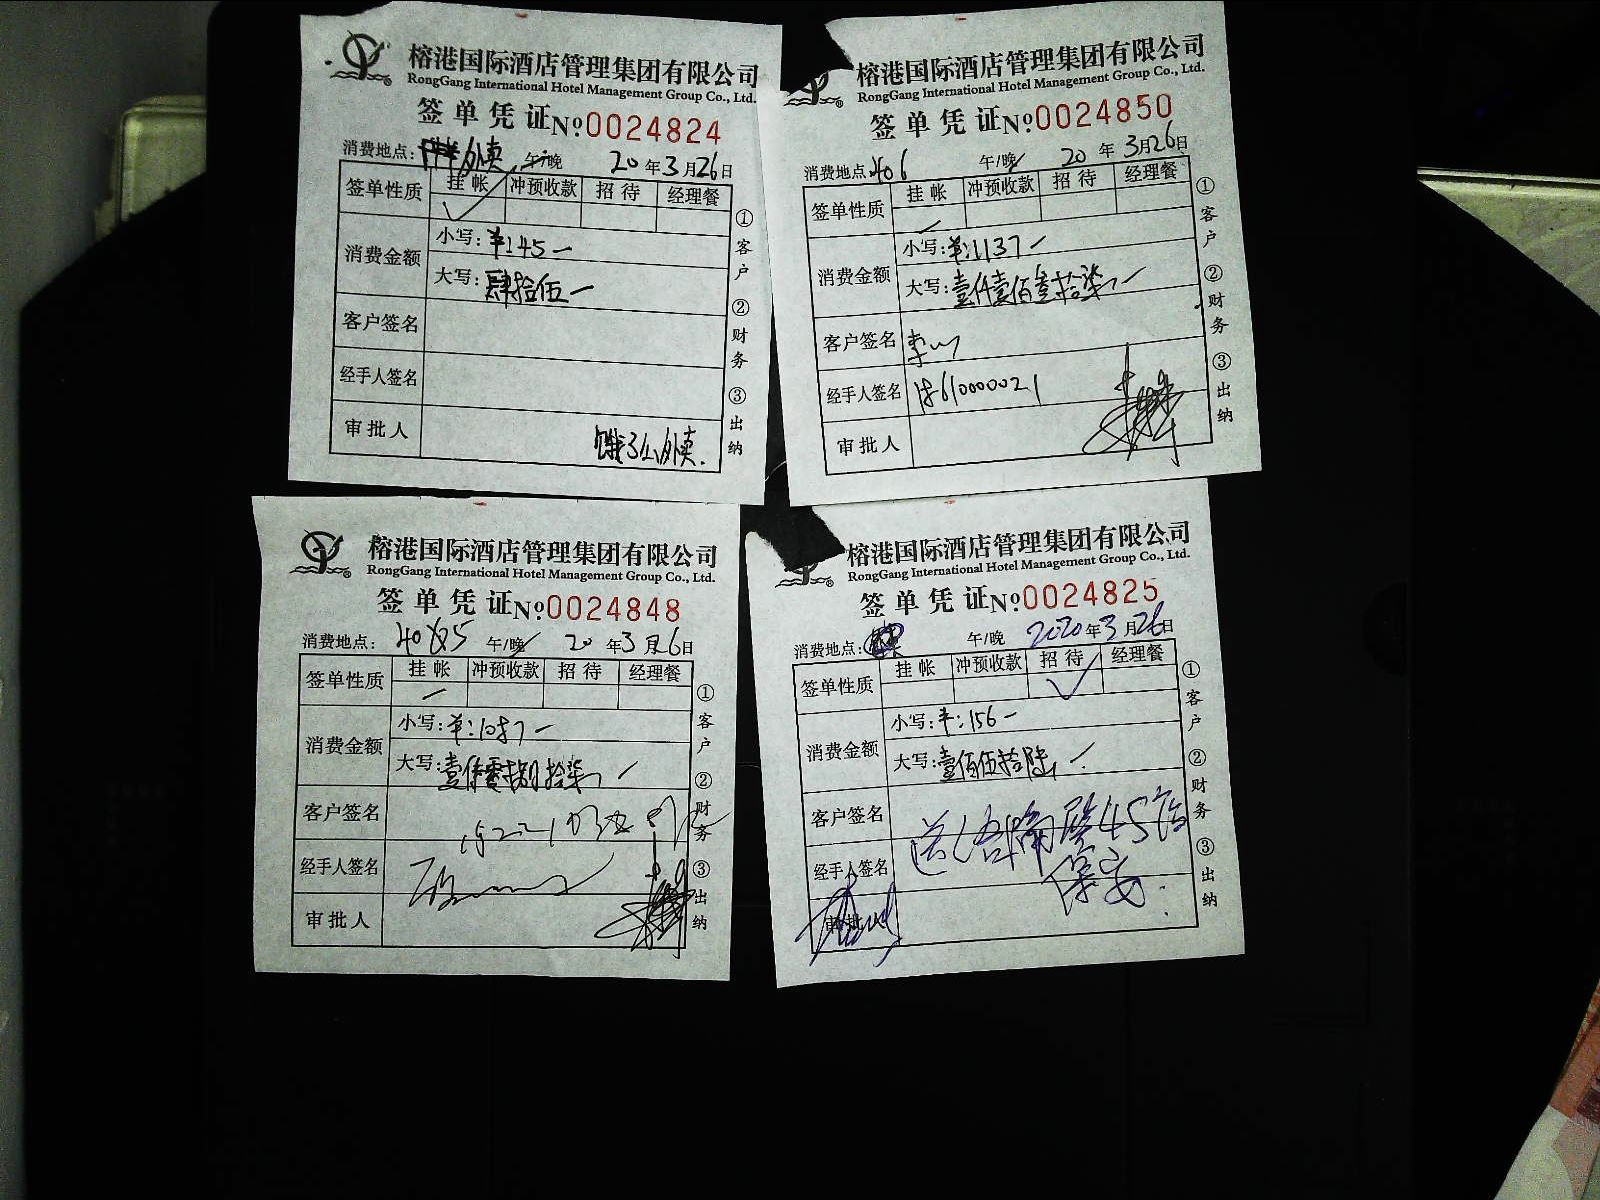 榕港国际酒店管理集团有限公司
RongGang International Hotel Management Group Co., Ltd.
签单凭证 № 0024824
消费地点: 外卖 午/晚 20年3月26日
签单性质 挂帐 冲预收款 招待 经理餐
消费金额 小写: ¥:45一
大写: 肆拾伍一
客户签名
经手人签名
审批人 饿了么外卖.
①客户 ②财务 ③出纳
榕港国际酒店管理集团有限公司
RongGang International Hotel Management Group Co., Ltd.
签单凭证 № 0024850
消费地点: 406 午/晚 20年3月26日
签单性质 挂帐 冲预收款 招待 经理餐
消费金额 小写: ¥:1137一
大写: 壹仟壹佰叁拾柒一
客户签名
经手人签名
审批人
①客户 ②财务 ③出纳
榕港国际酒店管理集团有限公司
RongGang International Hotel Management Group Co., Ltd.
签单凭证 № 0024848
消费地点: 午/晚 20年3月26日
签单性质 挂帐 冲预收款 招待 经理餐
消费金额 小写: ¥:1087一
大写: 壹仟零捌拾柒
客户签名
经手人签名
审批人
①客户 ②财务 ③出纳
榕港国际酒店管理集团有限公司
RongGang International Hotel Management Group Co., Ltd.
签单凭证 № 0024825
消费地点: 午/晚 2020年3月26日
签单性质 挂帐 冲预收款 招待 经理餐
消费金额 小写: ¥:156一
大写: 壹佰伍拾陆
客户签名
经手人签名 保安.
审批人
①客户 ②财务 ③出纳